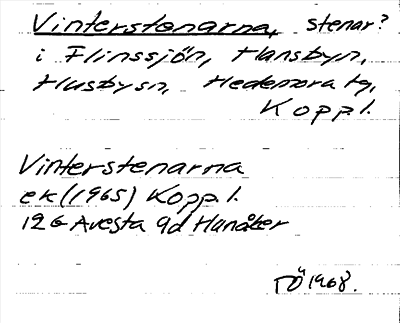 Vinterstenarna, stenar?
i Flinssjön, Hansbyn,
Husbysn, Hedemora tg,
Koppl.
Vinterstenarna
ek (1965) Koppl.
12G Avesta 9d Hanåker
RÖ 1968.